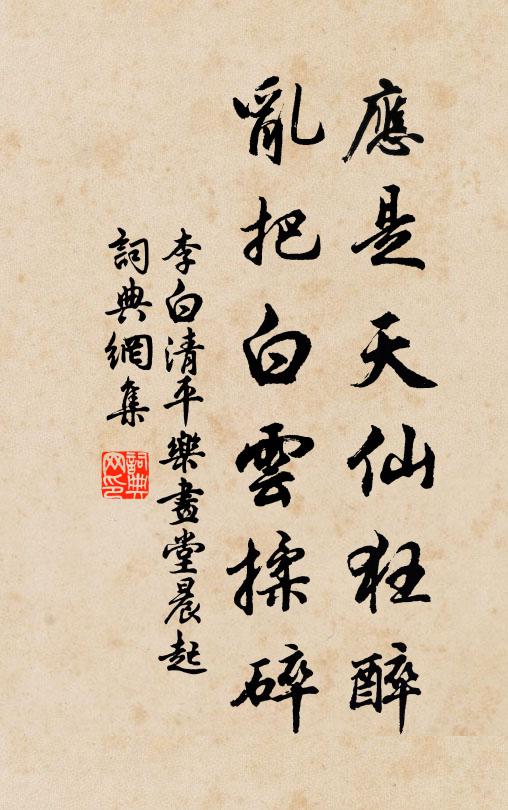 應是天仙狂醉
亂把白雲揉碎
李白清平樂畫堂晨起
詞典網集
詞典
网印